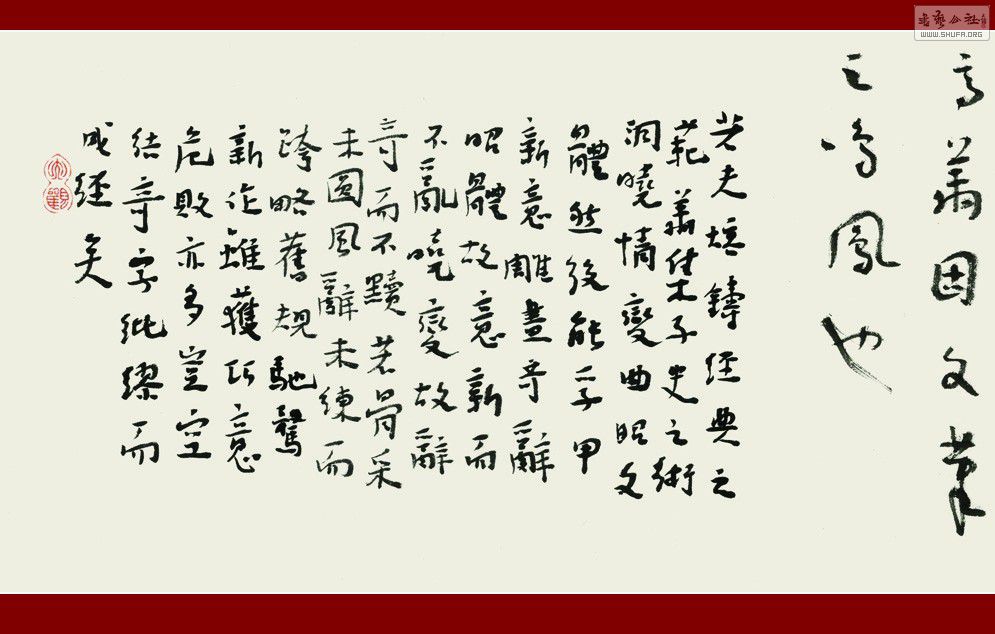 高翔固文筆
之鳴鳳也
若夫熔鑄經典之
範翔集子史之術
洞曉情變曲昭文
體然後能孚甲
新意雕畫奇辭
昭體故意新而
不亂曉變故辭
奇而不黷若骨采
未圓風辭未練而
跨略舊規馳騖
新作雖獲巧意
危敗亦多豈空
結奇字紕繆而
成經矣
書藝公社
WWW.SHUFA.ORG